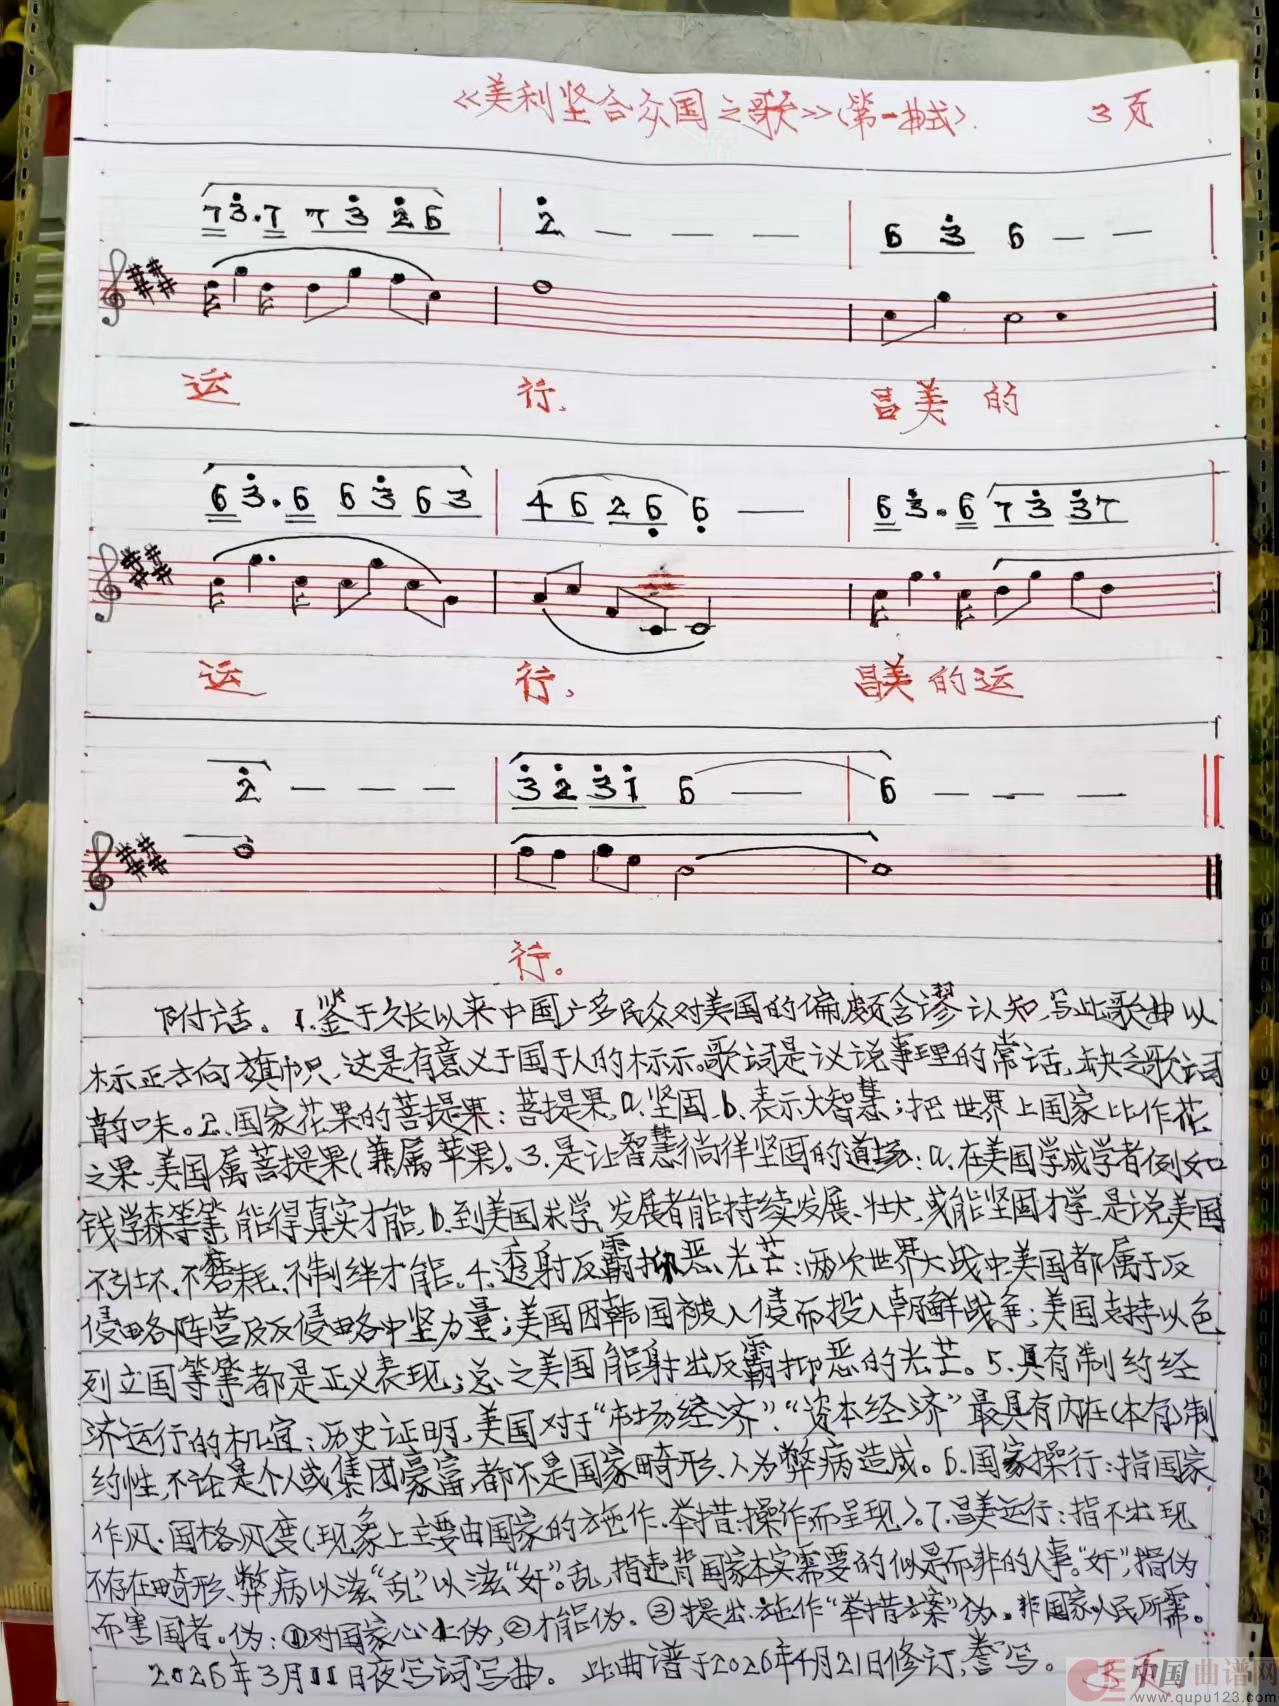 《美利坚合众国之歌》（第一曲式）. 3页
7 3̇. 7 7 3̇ 2̇ 6 | 2̇ — — — | 6 3̇ 6 — — |
运 行, 昌美的
6 3̇. 6 6 3̇ 6 3 | 4 6 2 6̣ 6̣ — | 6 3̇. 6 7 3̇ 3̇ 7 |
运 行, 昌美的运
2̇ — — — | 3̇ 2̇ 3̇ 1̇ 6 — | 6 — — — ‖
行。
附话。1.鉴于久长以来中国广多民众对美国的偏颇含谬认知,写此歌曲以
标正方向旗帜,这是有意义于国于人的标示。歌词是议说事理的常话,缺乏歌词
韵味。2.国家花果的菩提果:菩提果,a.坚固.b.表示大智慧;把世界上国家比作花
之果,美国属菩提果(兼属苹果)。3.是让智慧徜徉坚固的道场:a.在美国学成学者例如
钱学森等等,能得真实才能,b.到美国求学、发展者能持续发展、壮大,或能坚固才学,是说美国
不引坏、不磨耗、不制绊才能。4.透射反霸抑恶光芒:两次世界大战中美国都属于反
侵略阵营及反侵略中坚力量;美国因韩国被入侵而投入朝鲜战争;美国支持以色
列立国等等都是正义表现;总之美国能射出反霸抑恶的光芒。5.具有制约经
济运行的机宜:历史证明,美国对于“市场经济”、“资本经济”最具有内在(本有)制
约性,不论是个人或集团豪富,都不是国家畸形、人为弊病造成。6.国家操行:指国家
作风、国格风度(现象上主要由国家的施作、举措、操作而呈现)。7.昌美运行:指不出现
不存在畸形、弊病以滋“乱”以滋“奸”。乱,指违背国家本实需要的似是而非的人事。“奸”,指伪
而害国者。伪:①对国家心上伪,②才能伪。③提出、施作“举措方案”伪。非国家人民所需。
2026年3月11日夜写词写曲。此曲谱于2026年4月21日修订,誊写。 3页
中国曲谱网
www.qupu123.com